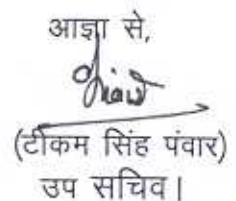 आज्ञा से,
(टीकम सिंह पंवार)
उप सचिव।